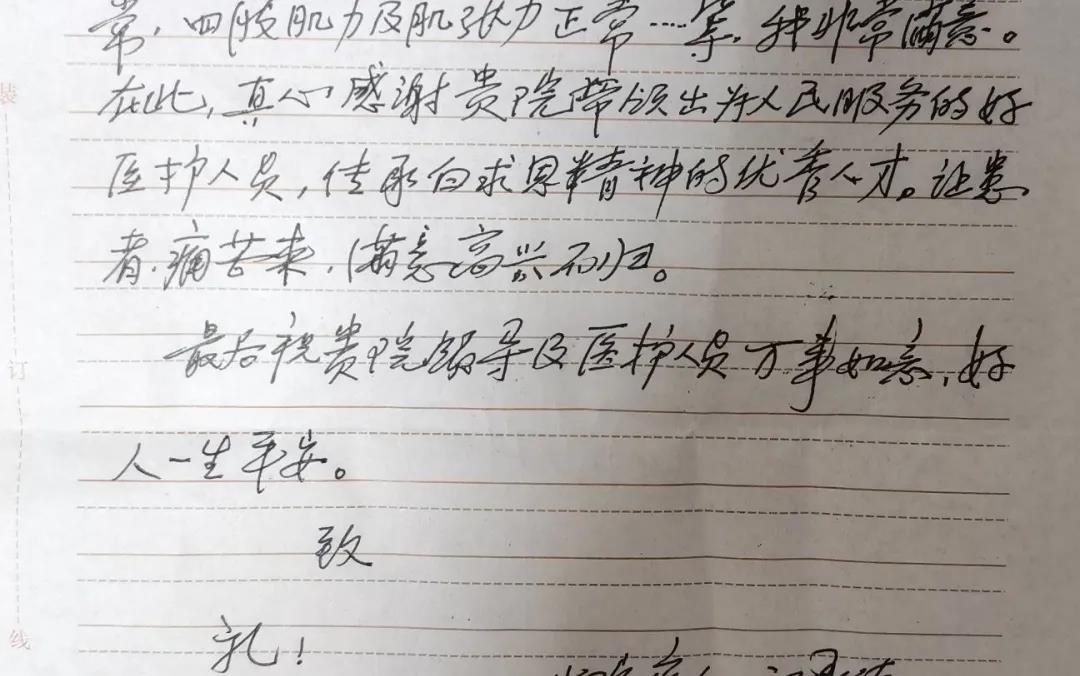 常，四肢肌力及肌张力正常……等，我非常满意。
在此，真心感谢贵院带领出为人民服务的好
医护人员，传承白求恩精神的优秀人才。让患
者．痛苦来，满意高兴而归。
最后祝贵院领导及医护人员万事如意，好
人一生平安。
致
礼！
装
订
线